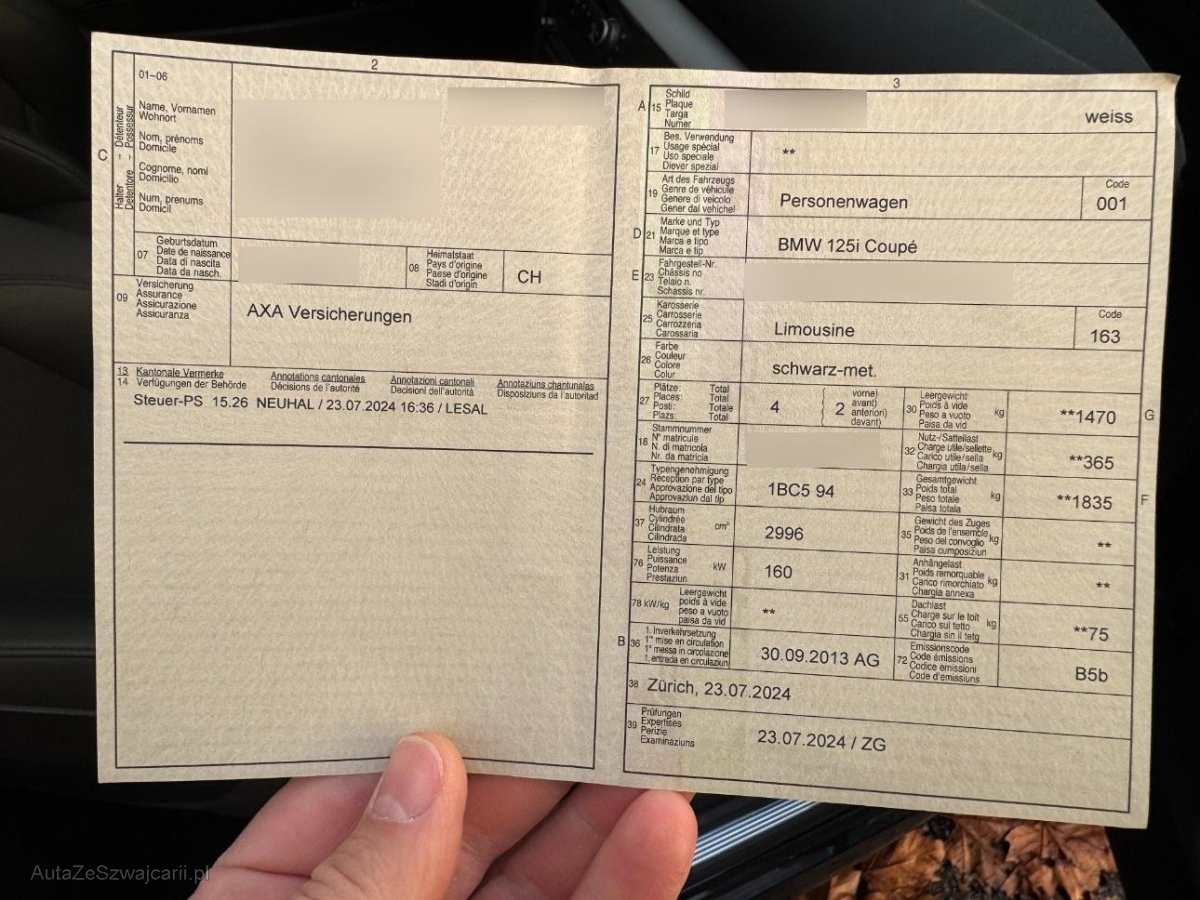 2
01–06
C
Halter – Détenteur
Detentore – Possessur
Name, Vornamen
Wohnort
Nom, prénoms
Domicile
Cognome, nomi
Domicilio
Num, prenums
Domicil
07
Geburtsdatum
Date de naissance
Data di nascita
Data da nasch.
08
Heimatstaat
Pays d'origine
Paese d'origine
Stadi d'origin
CH
09
Versicherung
Assurance
Assicurazione
Assicuranza
AXA Versicherungen
13 Kantonale Vermerke Annotations cantonales Annotazioni cantonali Annotaziuns chantunales
14 Verfügungen der Behörde Décisions de l'autorité Decisioni dell'autorità Disposiziuns da l'autoritad
Steuer-PS 15.26 NEUHAL / 23.07.2024 16:36 / LESAL
3
A 15
Schild
Plaque
Targa
Numer
weiss
17
Bes. Verwendung
Usage spécial
Uso speciale
Diever spezial
**
19
Art des Fahrzeugs
Genre de véhicule
Genere di veicolo
Gener dal vehichel
Personenwagen
Code
001
D 21
Marke und Typ
Marque et type
Marca e tipo
Marca e tip
BMW 125i Coupé
E 23
Fahrgestell-Nr.
Châssis no
Telaio n.
Schassis nr.
25
Karosserie
Carrosserie
Carrozzeria
Carossaria
Limousine
Code
163
26
Farbe
Couleur
Colore
Colur
schwarz-met.
27
Plätze: Total
Places: Total
Posti: Totale
Plazs: Total
4
2
vorne)
avant)
anteriori)
davant)
30
Leergewicht
Poids à vide
Peso a vuoto
Paisa da vid
kg
**1470
G
18
Stammnummer
N° matricule
N. di matricola
Nr. da matricla
32
Nutz-/Sattellast
Charge utile/sellette
Carico utile/sella
Chargia utila/sella
kg
**365
24
Typengenehmigung
Réception par type
Approvazione del tipo
Approvaziun dal tip
1BC5 94
33
Gesamtgewicht
Poids total
Peso totale
Paisa totala
kg
**1835
F
37
Hubraum
Cylindrée
Cilindrata
Cilindrada
cm³
2996
35
Gewicht des Zuges
Poids de l'ensemble
Peso del convoglio
Paisa cumposiziun
kg
**
76
Leistung
Puissance
Potenza
Prestaziun
kW
160
31
Anhängelast
Poids remorquable
Carico rimorchiato
Chargia annexa
kg
**
78 kW/kg
Leergewicht
poids à vide
peso a vuoto
paisa da vid
**
55
Dachlast
Charge sur le toit
Carico sul tetto
Chargia sin il tetg
kg
**75
B 36
1. Inverkehrsetzung
1re mise en circulation
1a messa in circolazione
1. entrada en circulaziun
30.09.2013 AG
72
Emissionscode
Code émissions
Codice emissioni
Code d'emissiuns
B5b
38 Zürich, 23.07.2024
39
Prüfungen
Expertises
Perizie
Examinaziuns
23.07.2024 / ZG
AutaZeSzwajcarii.pl